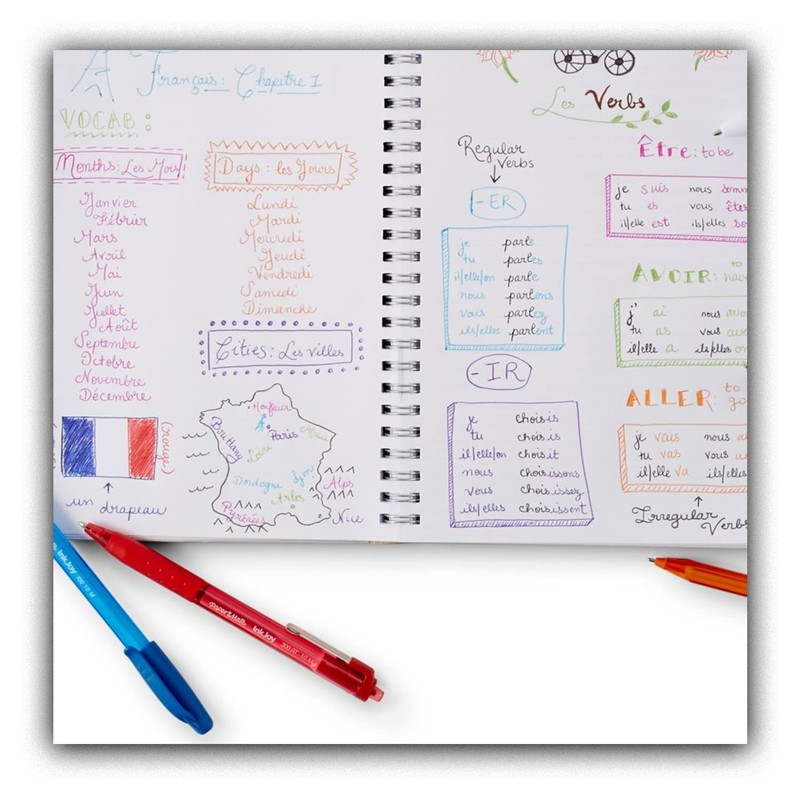 Français: Chapitre 1
VOCAB:
Months: Les Mois
Janvier
Février
Mars
Avril
Mai
Juin
Juillet
Août
Septembre
Octobre
Novembre
Décembre
Days: les Jours
Lundi
Mardi
Mercredi
Jeudi
Vendredi
Samedi
Dimanche
Cities: Les Villes
Honfleur
Paris
Brittany
Loire
Dordogne
Lyon
Alps
Arles
Pyrénées
Nice
(rouge)
un drapeau
Les Verbs
Regular
Verbs
-ER
je parle
tu parles
il/elle/on parle
nous parlons
vous parlez
ils/elles parlent
-IR
je choisis
tu choisis
il/elle/on choisit
nous choisissons
vous choisissez
ils/elles choisissent
Être: to be
je suis nous somm
tu es vous êtes
il/elle est ils/elles so
AVOIR: to
hav
j' ai nous avo
tu as vous ave
il/elle a ils/elles on
ALLER: to
go
je vais nous al
tu vas vous a
il/elle va ils/elles
Irregular
Verbs
InkJoy 100 1.0 M
PaperMate InkJoy